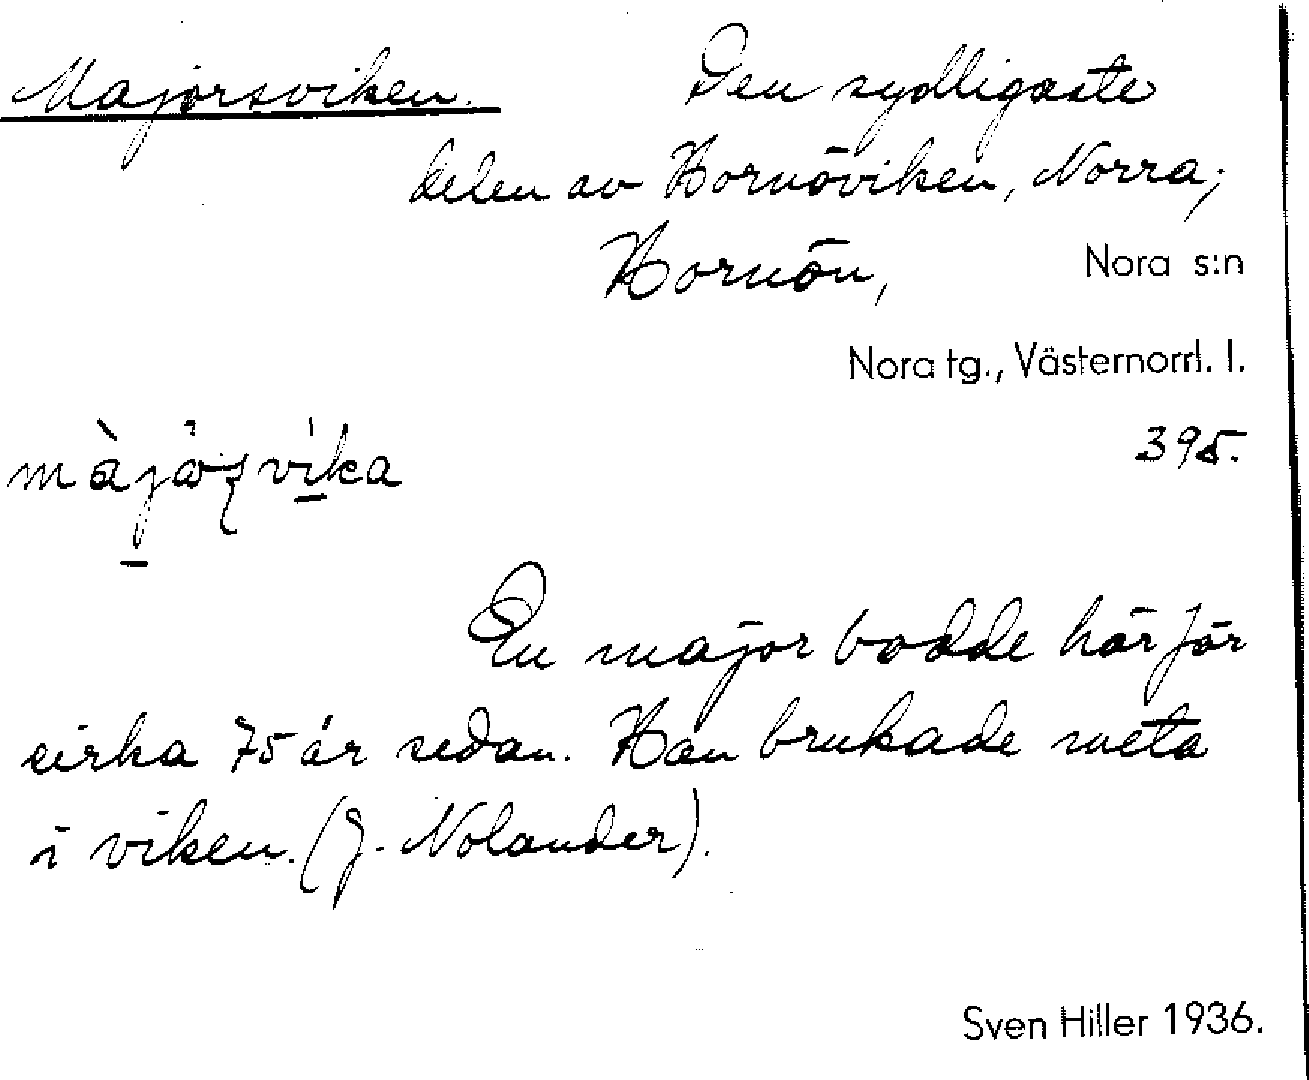 Majorsviken. Den sydligaste
delen av Hornöviken, Norra;
Hornön, Nora s:n
Nora tg., Västernorrl. l.
395.
En major bodde här för
cirka 75 år sedan. Han brukade meta
i viken. (J. Nolander).
Sven Hiller 1936.